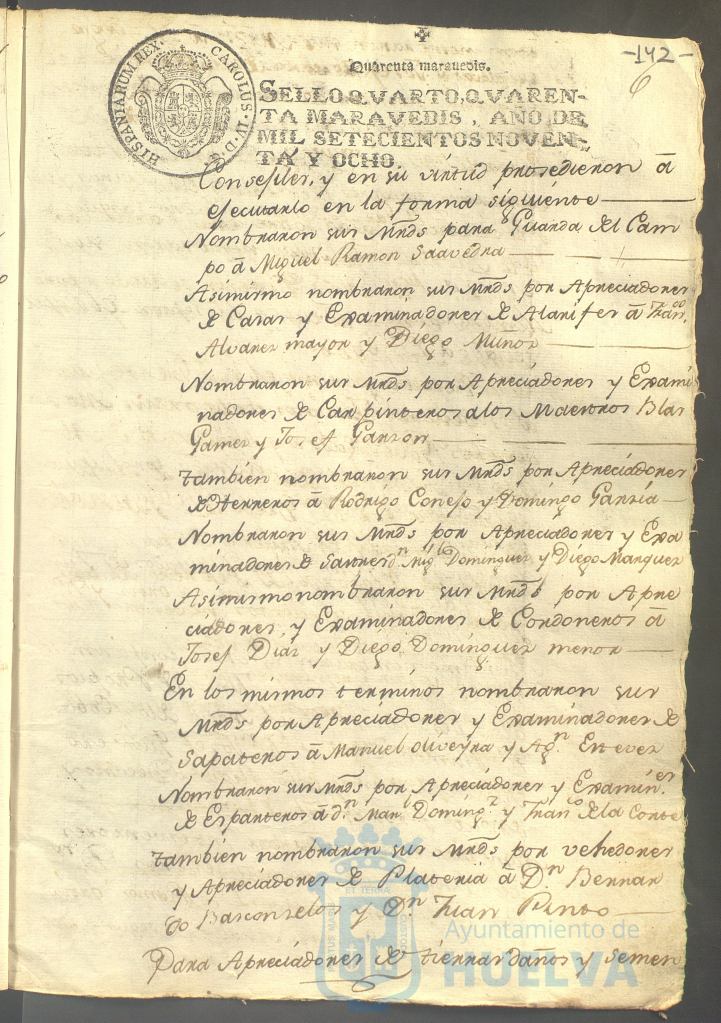 -142-
6
Quarenta maravedis.
HISPANIARUM REX. CAROLUS. IV. D. G.
SELLO QVARTO, QVAREN-
TA MARAVEDIS, AÑO DE
MIL SETECIENTOS NOVEN-
TA Y OCHO.
Consejiles, y en su virtud prosedieron â
ejecutarlo en la forma siguiente
Nombraron sus Mrds para Guarda del Cam
po â Miguel Ramon Saavedra
Asimismo nombraron sus Mrds por Apreciadores
de Casas y Examinadores de Alarifes â Fran.co
Alvares mayor y Diego Muños
Nombraron sus Mrds por Apreciadores y Exami
nadores de Carpinteros alos Maestros Blas
Games y Josef Garzon
tambien nombraron sus Mrds por Apreciadores
de Herreros â Rodrigo Conejo y Domingo Garzia
Nombraron sus Mrds por Apreciadores y Exa
minadores de Sastres dn Migl Dominguez y Diego Marquez
Asimismo nombraron sus Mrds por Apre
ciadores, y Examinadores de Cordoneros â
Josef Dias y Diego Dominguez menor
En los mismos terminos nombraron sus
Mrds por Apreciadores y Examinadores de
Sapateros â Manuel oliveyra y Agn Estevez
Nombraron sus Mrds por Apreciadores y Examin.es
de Esparteros â dn Manl Doming.z y Fran.co de la Corte
tambien nombraron sus Mrds por vehedores
y Apreciadores de Plateria â Dn Bernar
do Basconselos y Dn Juan Pinto
Para Apreciadores de tierras daños y semen
Ayuntamiento de
HUELVA